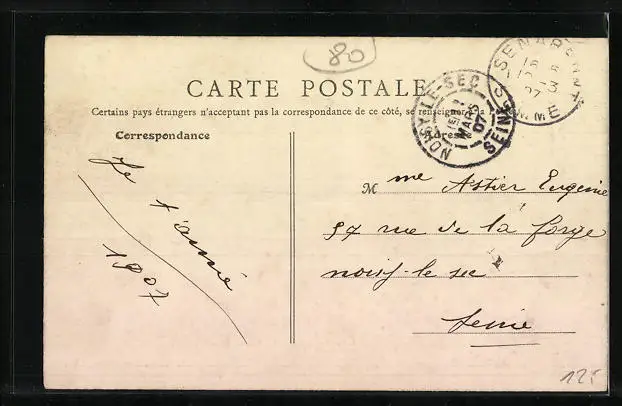 80
CARTE POSTALE
Certains pays étrangers n'acceptant pas la correspondance de ce côté, se renseigner à la
Correspondance
Adresse
NOISY-LE-SEC
MARS
07
SEINE
SENARPONT
SOMME
Je t'aime
1907
Mme Astier Eugenie
97 rue de la forge
noisy-le sec
Seine